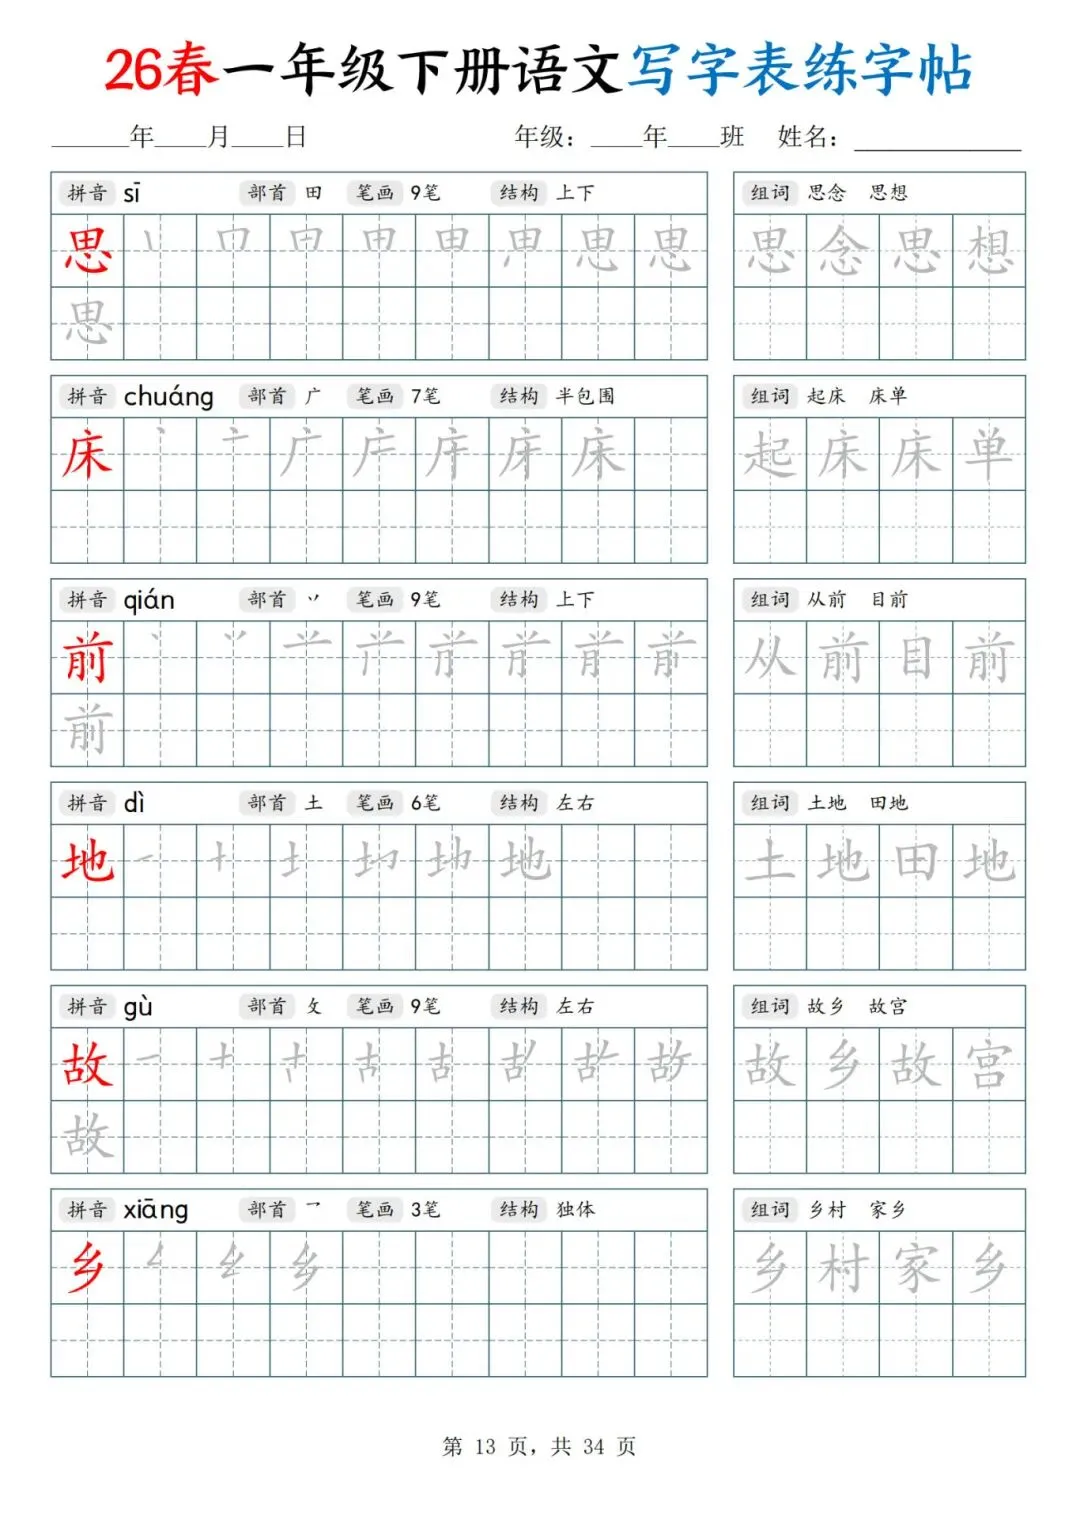 26春一年级下册语文写字表练字帖
____年____月____日 年级：____年____班 姓名：________
拼音 sī 部首 田 笔画 9笔 结构 上下 组词 思念 思想
思 思 念 思 想
思
拼音 chuáng 部首 广 笔画 7笔 结构 半包围 组词 起床 床单
床 床 起 床 床 单
拼音 qián 部首 丷 笔画 9笔 结构 上下 组词 从前 目前
前 从 前 目 前
前
拼音 dì 部首 土 笔画 6笔 结构 左右 组词 土地 田地
地 地 土 地 田 地
拼音 gù 部首 攵 笔画 9笔 结构 左右 组词 故乡 故宫
故 故 乡 故 宫
故
拼音 xiāng 部首 乛 笔画 3笔 结构 独体 组词 乡村 家乡
乡 乡 乡 村 家 乡
第 13 页，共 34 页